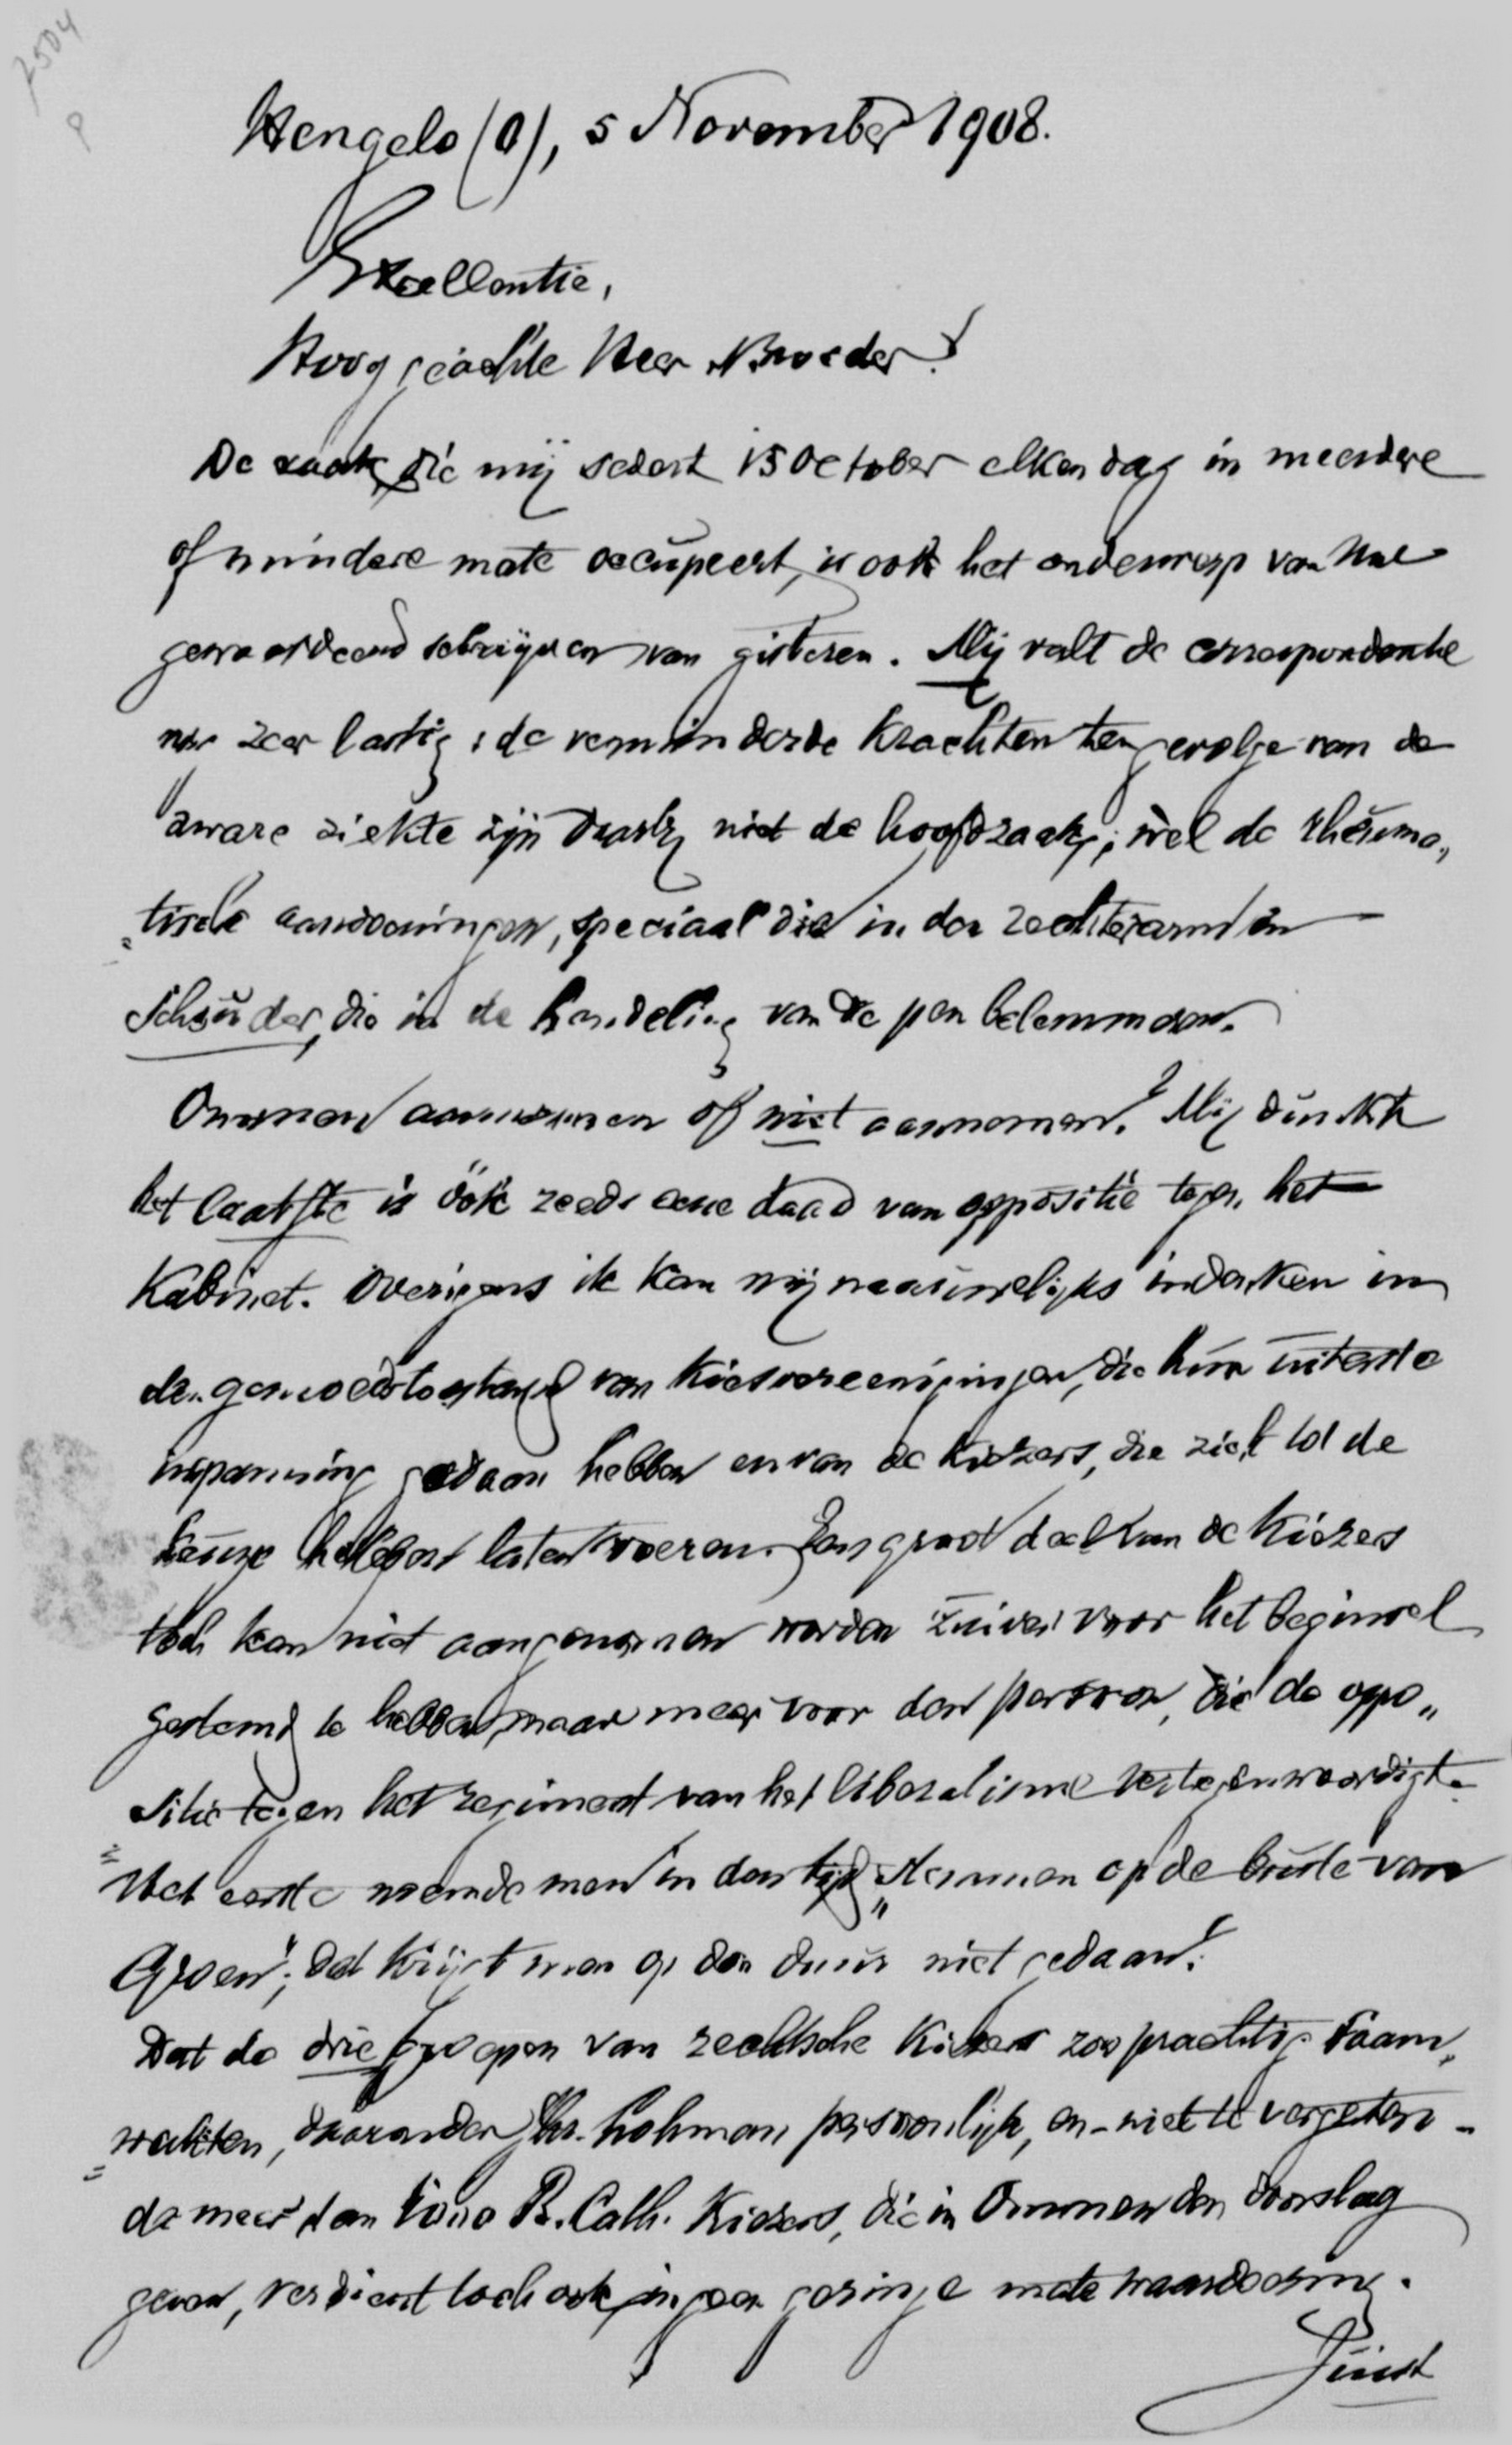 7504
P
Hengelo (O), 5 November 1908.
Excellentie,
Hooggeachte Heer & Broeder!
De zaak, die mij sedert 15 October elken dag in meerdere
of mindere mate occupeert, is ook het onderwerp van Uwe
gewaardeerd schrijven van gisteren. Mij valt de correspondentie
nu zeer lastig; de verminderde krachten tengevolge van de
zware ziekte zijn daarbij niet de hoofdzaak; wel de rheuma„
„tische aandoeningen, speciaal die in den rechterarm en
schouder, die in de handeling van de pen belemmeren.
Ommen aannemen of niet aannemen? Mij dunkt
het laatste is óók reeds eene daad van oppositie tegen het
Kabinet. Overigens ik kan mij nauwelijks indenken in
den gemoedstoestand van Kiesvereenigingen, die hun uiterste
inspanning gedaan hebben en van de kiezers, die zich tot de
keuze hebben laten voeren. Een groot deel van de kiezers
toch kan niet aangenomen worden zuiver voor het beginsel
gestemd te hebben, maar meer voor den persoon, die de oppo„
sitie tegen het regiment van het liberalisme vertegenwoordigt.
Het eerste noemde men in den tijd „stemmen op de buste van
Groen”; dat krijgt men op den duur niet gedaan!
Dat de drie groepen van rechtsche kiezers zoo prachtig saam„
„werkten, daaronder Jhr. Lohman persoonlijk, en - niet te vergeten -
de meer dan 1000 R. Cath. Kiezers, die in Ommen den doorslag
geven, verdient toch ook in geen geringe mate waardeering.
Juist